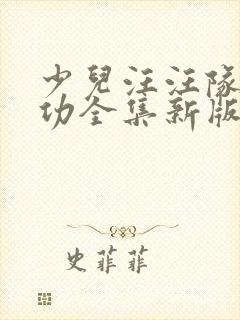 少兒汪汪隊
功全集新版
史菲菲